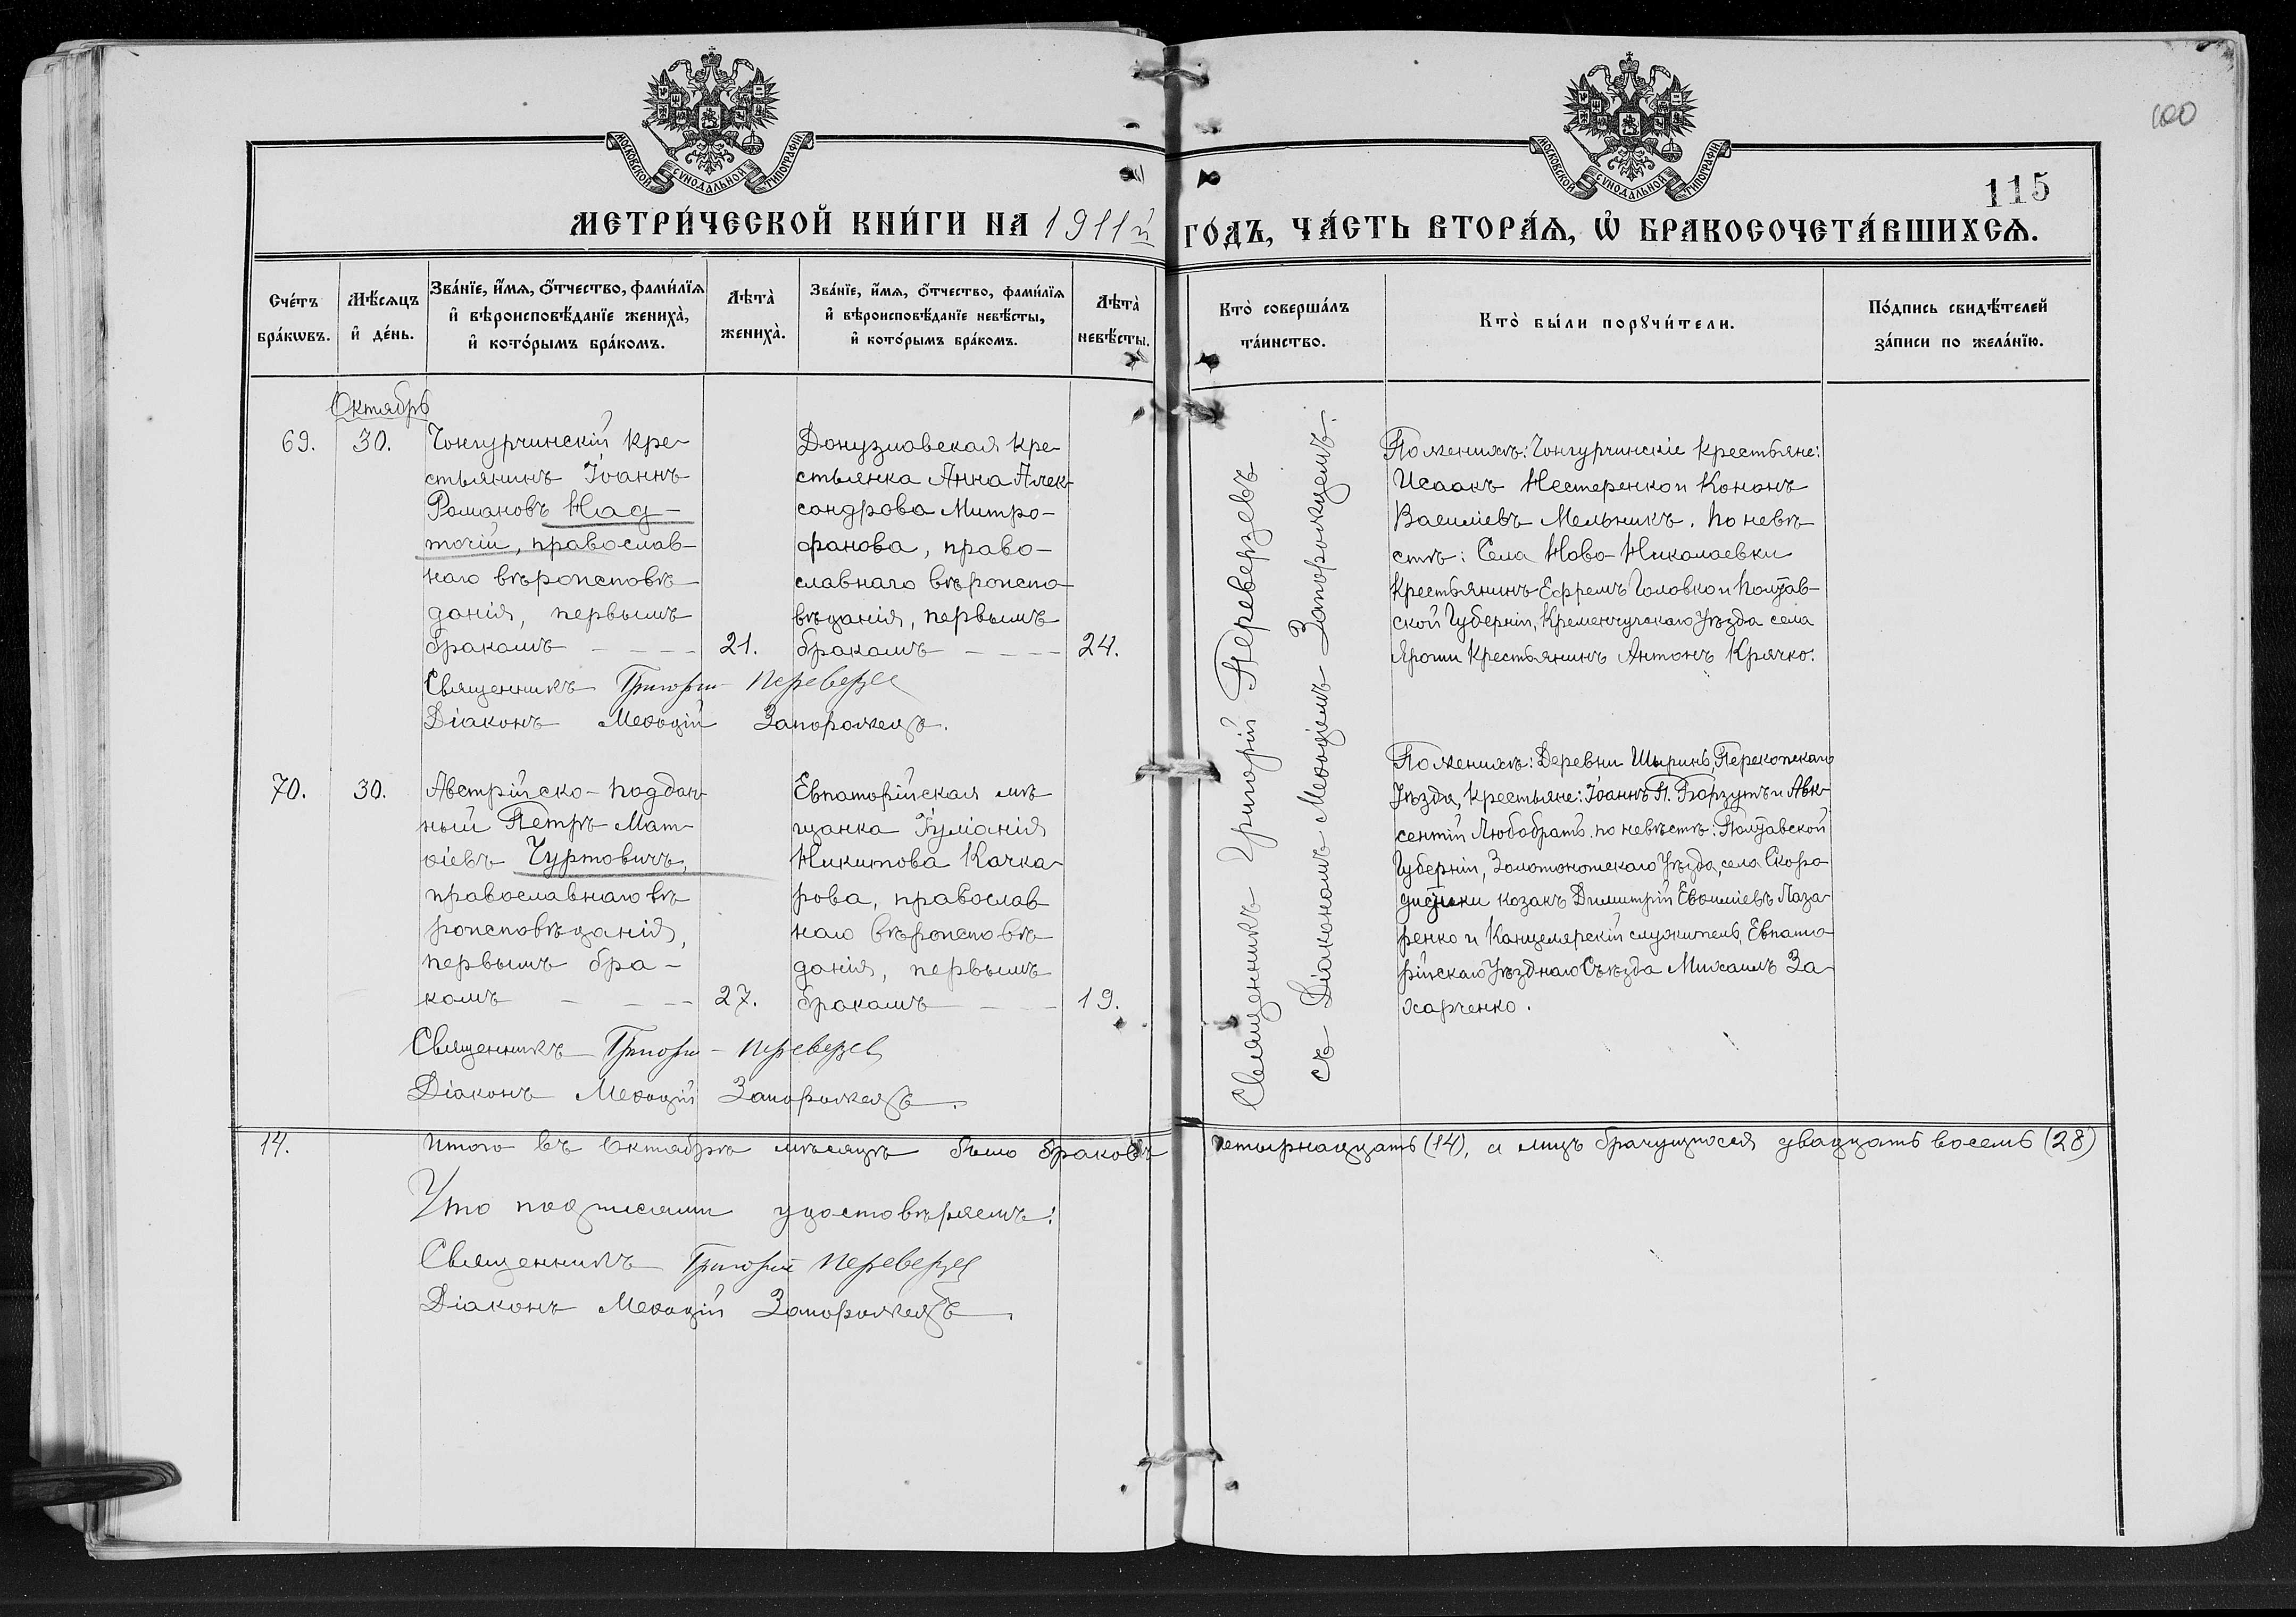 100
115
МОСКОВСКОЙ СѴНОДАЛЬНОЙ ТИПОГРАФІИ
МОСКОВСКОЙ СѴНОДАЛЬНОЙ ТИПОГРАФІИ
МЕТРИ́ЧЕСКОЙ КНИ́ГИ НА 1911й ГО́ДЪ, ЧА́СТЬ ВТОРА́Ѧ, Ѡ҆ БРАКОСОЧЕТА́ВШИХСѦ.
Сче́тъ бра́кѡвъ.
Мѣ́сѧцъ и҆ де́нь.
Зва́нїе, и҆́мѧ, ѻ҆́тчество, фами́лїѧ
и҆ вѣроисповѣ́данїе жениха̀,
и҆ кото́рымъ бра́комъ.
Лѣта̀ жениха̀.
Зва́нїе, и҆́мѧ, ѻ҆́тчество, фами́лїѧ
и҆ вѣроисповѣ́данїе невѣ́сты,
и҆ кото́рымъ бра́комъ.
Лѣта̀ невѣ́сты.
Кто̀ соверша́лъ та́инство.
Кто̀ бы́ли порꙋчи́тели.
По́дпись свидѣ́телей за́писи по жела́нїю.
Октябрь
69.
30.
Чонгурчинскій кре-
стьянинъ Іоаннъ
Романовъ Над-
точій, православ-
наго вѣроисповѣ-
данія, первымъ
бракомъ - - - -
21.
Донузлавская кре-
стьянка Анна Алек-
сандрова Митро-
фанова, право-
славнаго вѣроиспо-
вѣданія, первымъ
бракомъ - - - -
24.
Священникъ Григорій Переверзев
Діаконъ Меѳодій Запорожецъ.
Священникъ Григорій Переверзевъ
съ Діакономъ Меѳодіемъ Запорожцемъ.
По женихѣ: Чонгурчинскіе крестьяне:
Исаакъ Нестеренко и Кононъ
Василіевъ Мельникъ. По невѣ-
стѣ: Села Ново-Николаевки
крестьянинъ Ефремъ Головко и Полтав-
ской Губерніи, Кременчугскаго Уѣзда села
Ярошки крестьянинъ Антонъ Крячко.
70.
30.
Австрійско-поддан-
ный Петръ Мат-
ѳіевъ Чуртовичъ,
православнаго вѣ-
роисповѣданія,
первымъ бра-
комъ - - - -
27.
Евпаторійская мѣ-
щанка Іуліанія
Никитова Качка-
рова, православ
наго вѣроисповѣ-
данія, первымъ
бракомъ - - -
19.
Священникъ Григорій Переверзев
Діаконъ Меѳодій Запорожецъ.
По женихѣ: Деревни Ширинъ, Перекопскаго
Уѣзда, крестьяне: Іоаннъ П. Борзутъ и Авк-
сентій Любобратъ. по невѣстѣ: Полтавской
Губерніи, Золотоношскаго Уѣзда, села
козакъ Димитрій Евѳиміевъ Лаза-
ренко и Канцелярскій служитель, Евпато-
рійскаго Уѣзднаго Съѣзда Михаилъ За-
харченко.
14.
Итого въ Октябрѣ мѣсяцѣ было браковъ четырнадцать (14), а лицъ брачущихся двадцать восемь (28)
Что подписями удостовѣряемъ:
Священникъ Григорій Переверзев
Діаконъ Меѳодій Запорожецъ